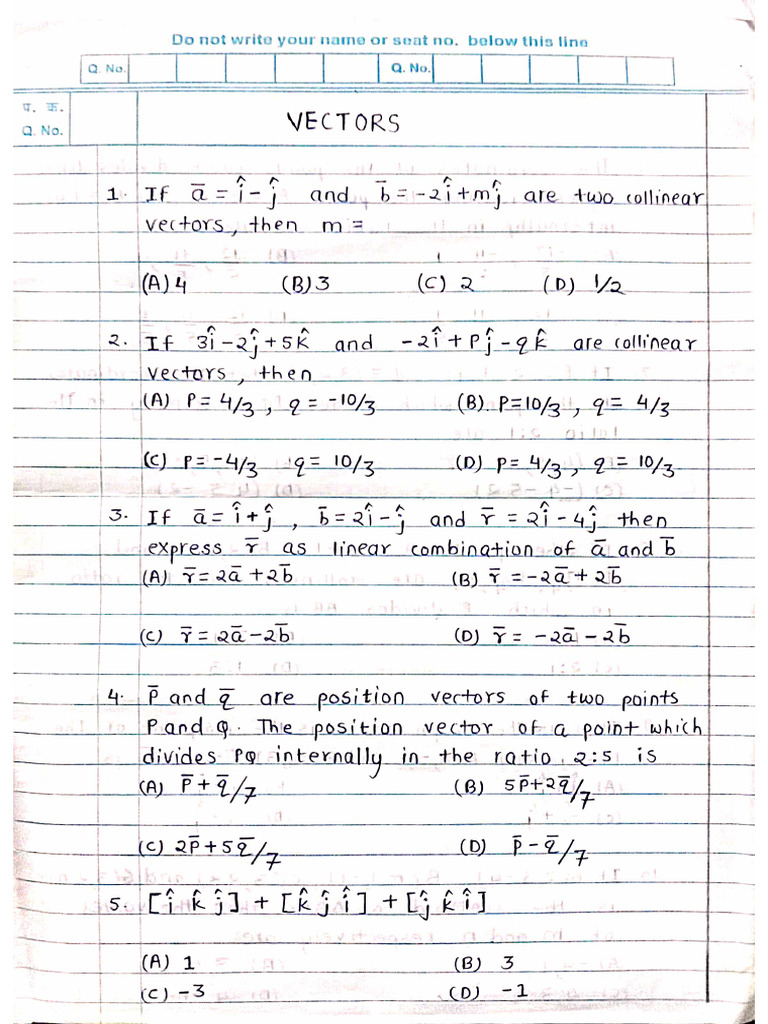 Do not write your name or seat no. below this line
Q. No. Q. No.
प. क.
Q. No.
VECTORS
1. If a̅ = î - ĵ and b̅ = -2î + mĵ are two collinear
vectors, then m =
(A) 4 (B) 3 (C) 2 (D) 1/2
2. If 3î - 2ĵ + 5k̂ and -2î + Pĵ - qk̂ are collinear
vectors, then
(A) P = 4/3, q = -10/3 (B). P=10/3, q = 4/3
(C) P = -4/3 q = 10/3 (D) P = 4/3, q = 10/3
3. If a̅ = î + ĵ, b̅ = 2î - ĵ and r̅ = 2î - 4ĵ then
express r̅ as linear combination of a̅ and b̅
(A) r̅ = 2a̅ + 2b̅ (B) r̅ = -2a̅ + 2b̅
(C) r̅ = 2a̅ - 2b̅ (D) r̅ = -2a̅ - 2b̅
4. P̅ and q̅ are position vectors of two points
P and Q. The position vector of a point which
divides PQ internally in the ratio 2:5 is
(A) P̅ + q̅/7 (B) 5P̅+2q̅/7
(C) 2P̅+5q̅/7 (D) P̅ - q̅/7
5. [î k̂ ĵ] + [k̂ ĵ î] + [ĵ k̂ î]
(A) 1 (B) 3
(C) -3 (D) -1